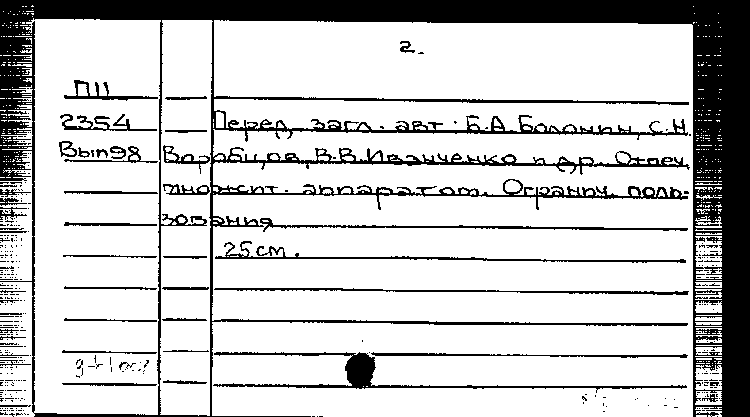 2.
П11
2354 Перед. загл. авт.: Б.А. Болонин, С.Н.
Вып98 Воробцов, В.В. Иванченко и др. Отпеч.
множит. аппаратом. Огранич. поль-
зования
25 см.